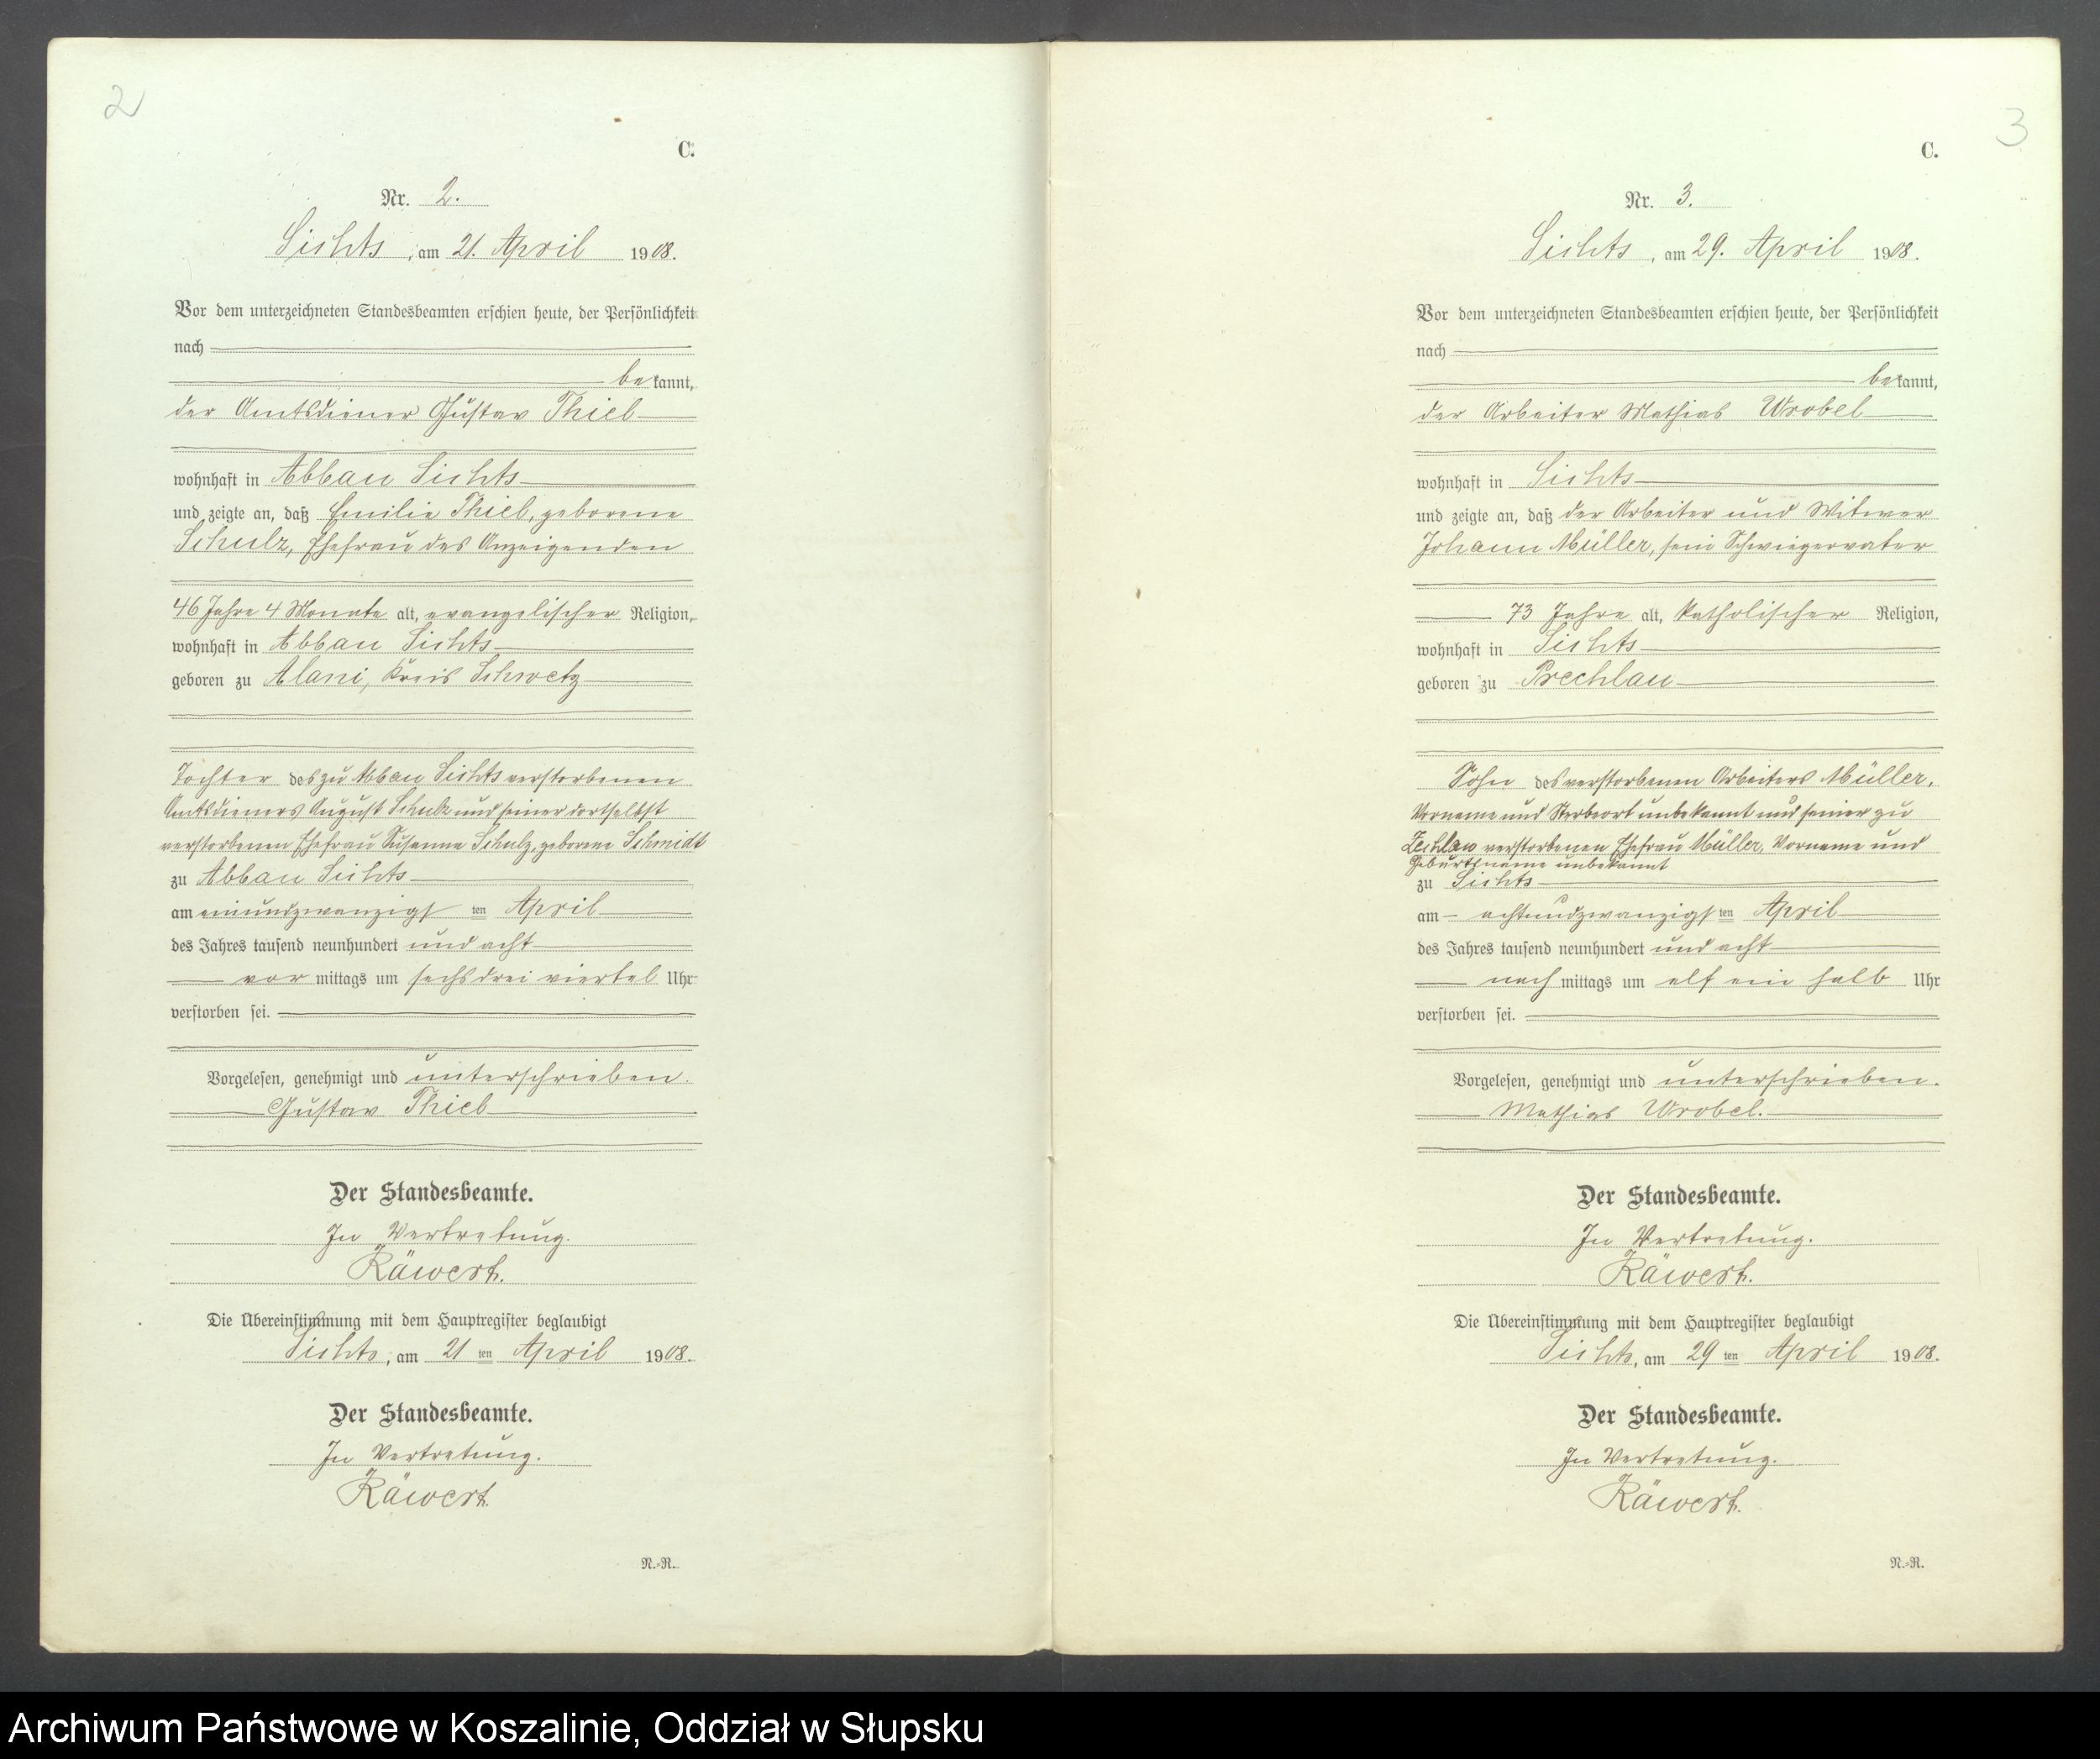 2
C.
Nr. 2.
Sichts, am 21. April 1908.
Vor dem unterzeichneten Standesbeamten erschien heute, der Persönlichkeit
nach
bekannt,
der Amtsdiener Gustav Thiel
wohnhaft in Abbau Sichts
und zeigte an, daß Emilie Thiel, geborene
Schulz, Ehefrau des Anzeigenden
46 Jahre 4 Monate alt, evangelischer Religion,
wohnhaft in Abbau Sichts
geboren zu Alani, Kreis Schwetz
Tochter des zu Abbau Sichts verstorbenen
Amtsdieners August Schulz und seiner dortselbst
verstorbenen Ehefrau Susanne Schulz, geborene Schmidt
zu Abbau Sichts
am einundzwanzigsten April
des Jahres tausend neunhundert und acht
vormittags um sechs drei viertel Uhr
verstorben sei.
Vorgelesen, genehmigt und unterschrieben.
Gustav Thiel
Der Standesbeamte.
In Vertretung.
Räwert.
Die Übereinstimmung mit dem Hauptregister beglaubigt
Sichts, am 21ten April 1908.
Der Standesbeamte.
In Vertretung.
Räwert.
N.-R.
3
C.
Nr. 3.
Sichts, am 29. April 1908.
Vor dem unterzeichneten Standesbeamten erschien heute, der Persönlichkeit
nach
bekannt,
der Arbeiter Mathias Wrobel
wohnhaft in Sichts
und zeigte an, daß der Arbeiter und Witwer
Johann Müller, sein Schwiegervater
73 Jahre alt, katholischer Religion,
wohnhaft in Sichts
geboren zu Prechlau
Sohn des verstorbenen Arbeiters Müller,
Vorname und Sterbeort unbekannt und seiner zu
Zechlau verstorbenen Ehefrau Müller, Vorname und
Geburtsname unbekannt
zu Sichts
am achtundzwanzigsten April
des Jahres tausend neunhundert und acht
nachmittags um elf ein halb Uhr
verstorben sei.
Vorgelesen, genehmigt und unterschrieben.
Mathias Wrobel.
Der Standesbeamte.
In Vertretung.
Räwert.
Die Übereinstimmung mit dem Hauptregister beglaubigt
Sichts, am 29ten April 1908.
Der Standesbeamte.
In Vertretung.
Räwert.
N.-R.
Archiwum Państwowe w Koszalinie, Oddział w Słupsku